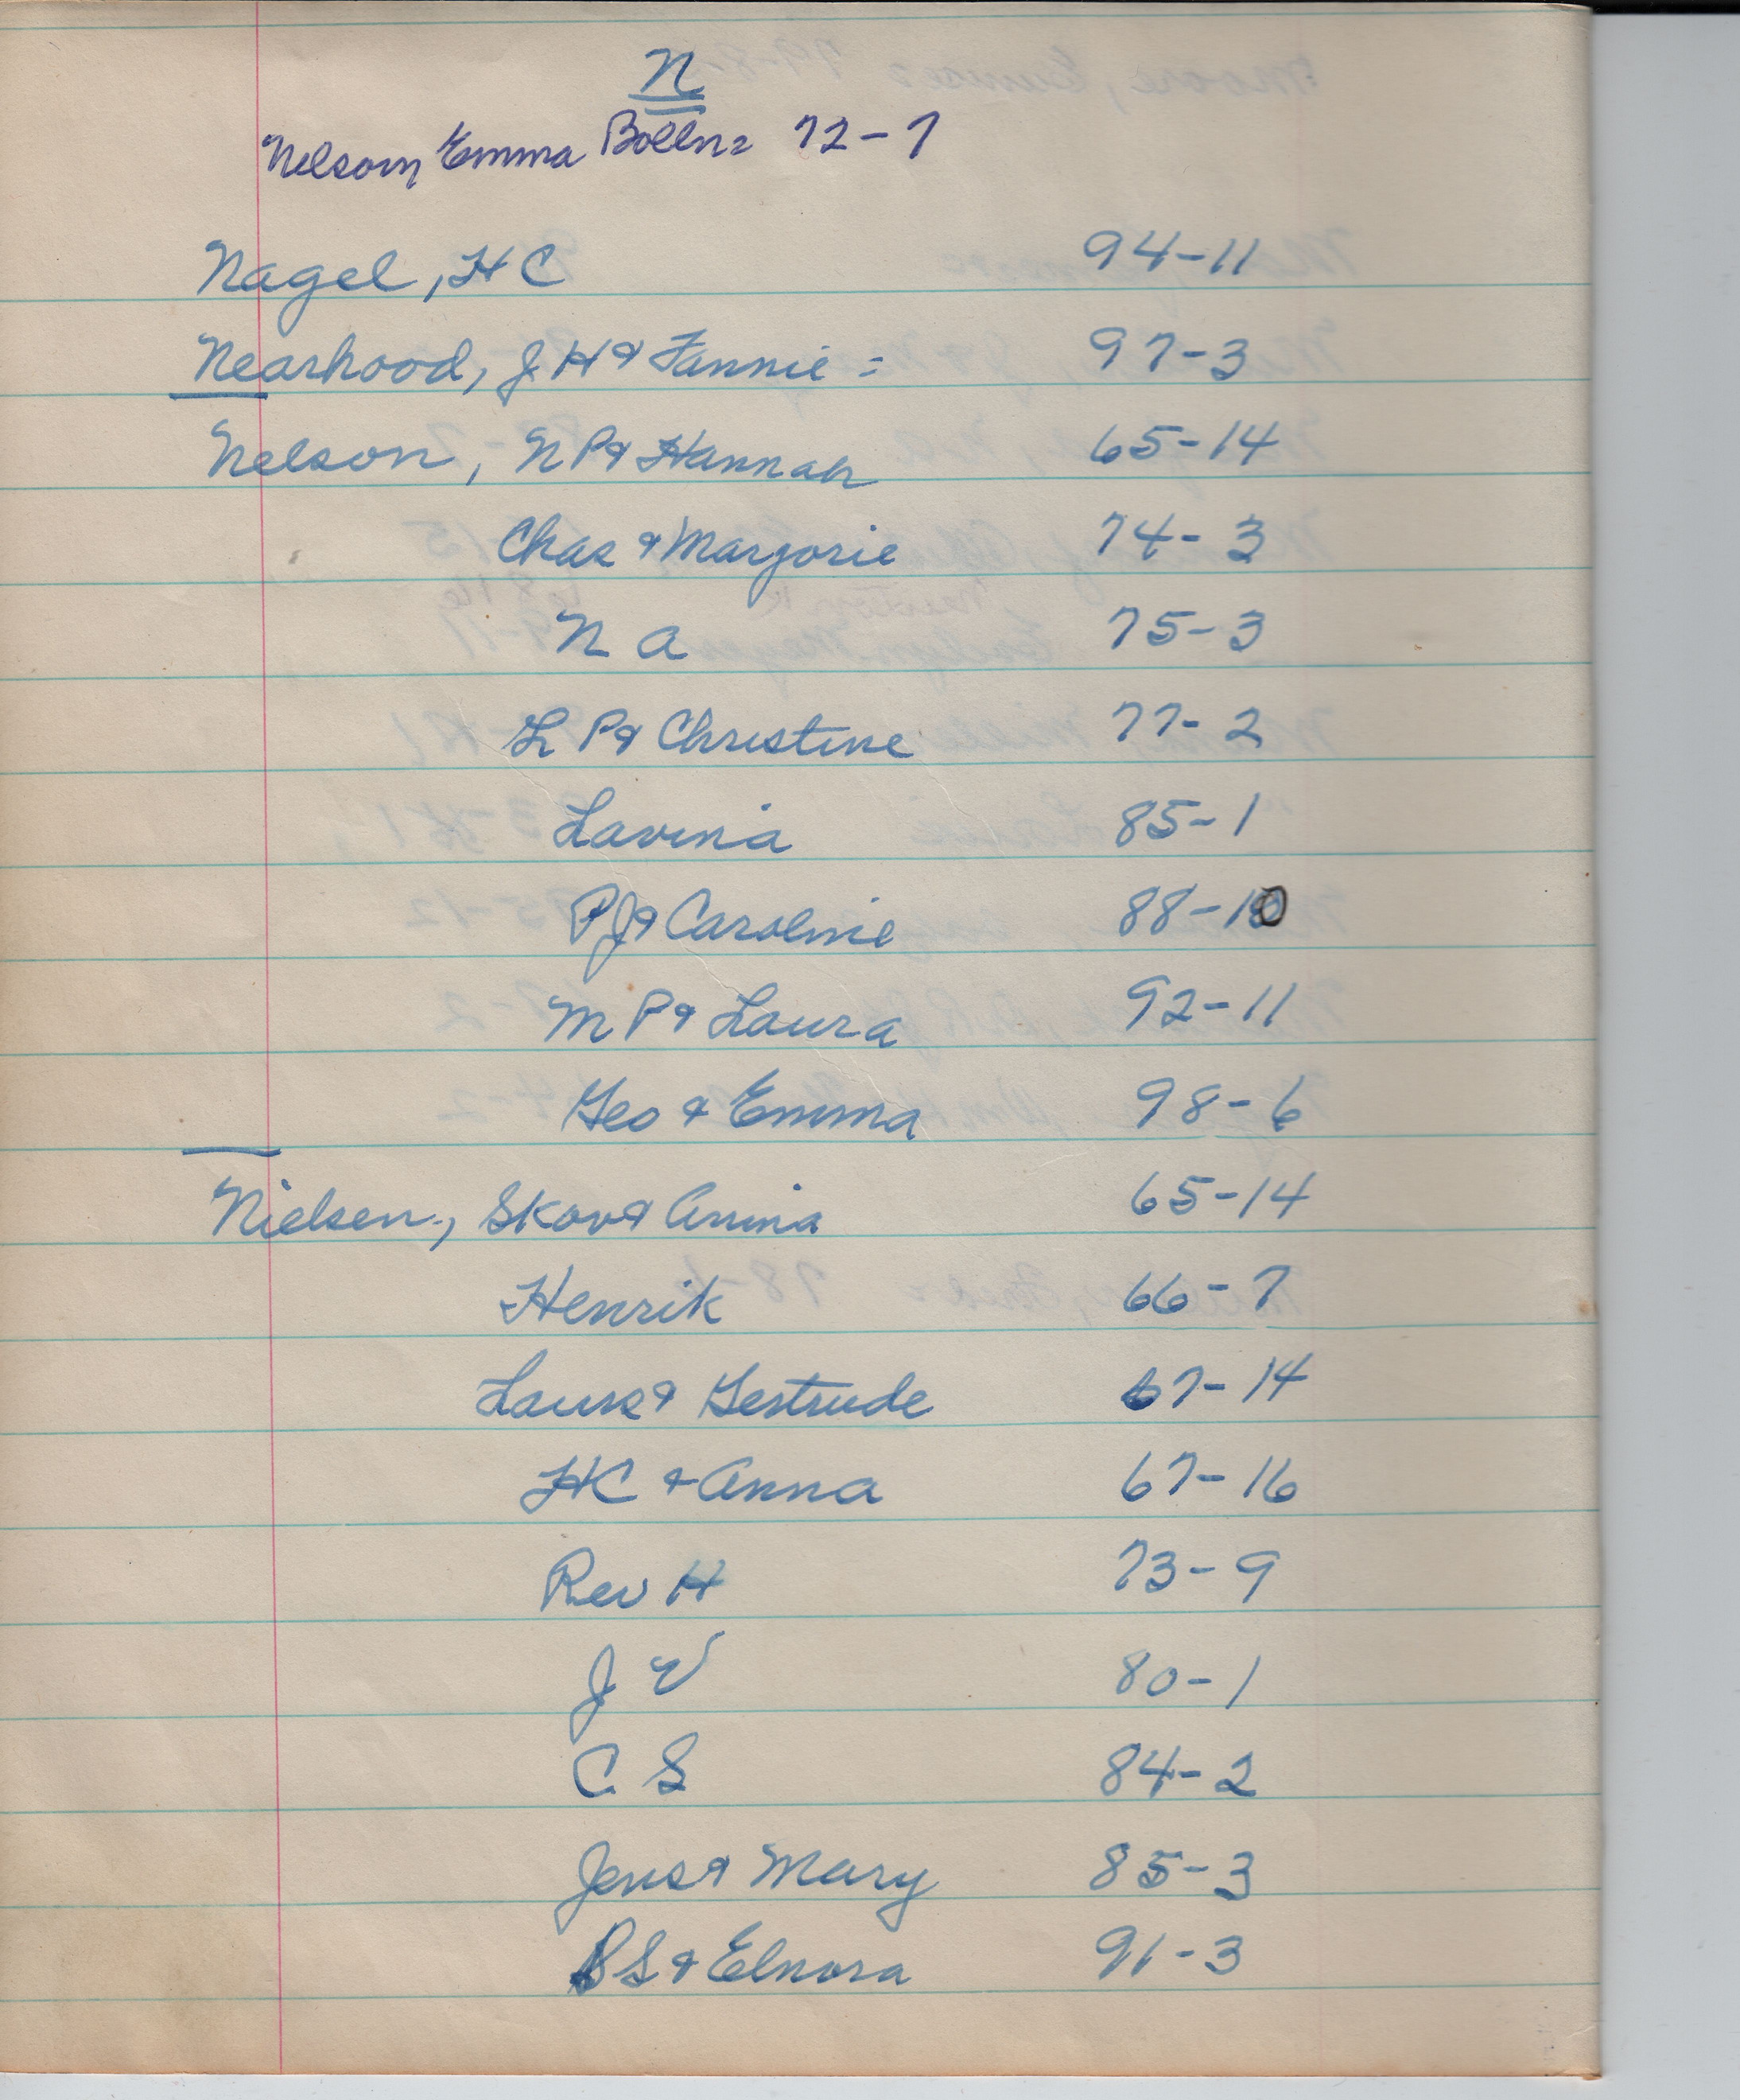 N
Nelson, Emma Bolln= 72-7
Nagel, H C 94-11
Nearhood, J H & Fannie = 97-3
Nelson, N P & Hannah 65-14
Chas & Marjorie 74-3
N A 75-3
L P & Christine 77-2
Lavina 85-1
P J & Caroline 88-10
M P & Laura 92-11
Geo & Emma 98-6
Nielsen, Skov & Anina 65-14
Henrik 66-7
Laurs & Gertrude 67-14
H C & Anna 67-16
Rev H 73-9
J V 80-1
C S 84-2
Jens & Mary 85-3
B S & Elnora 91-3